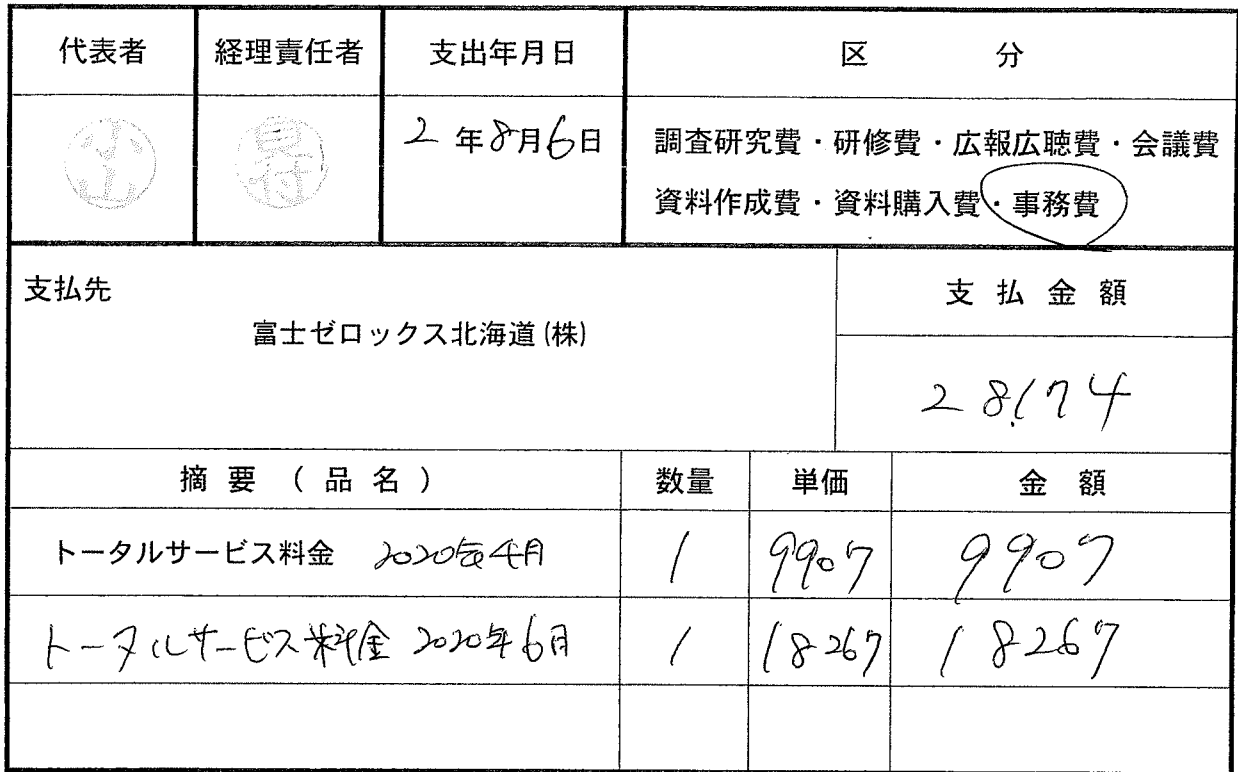 代表者 経理責任者 支出年月日 区 分
小山 2 年 8月 6日 調査研究費・研修費・広報広聴費・会議費
資料作成費・資料購入費・事務費
支払先 支 払 金 額
富士ゼロックス北海道(株)
28,174
摘 要 ( 品 名 ) 数量 単価 金 額
トータルサービス料金 2020年4月 1 9907 9907
トータルサービス料金 2020年6月 1 18267 18267